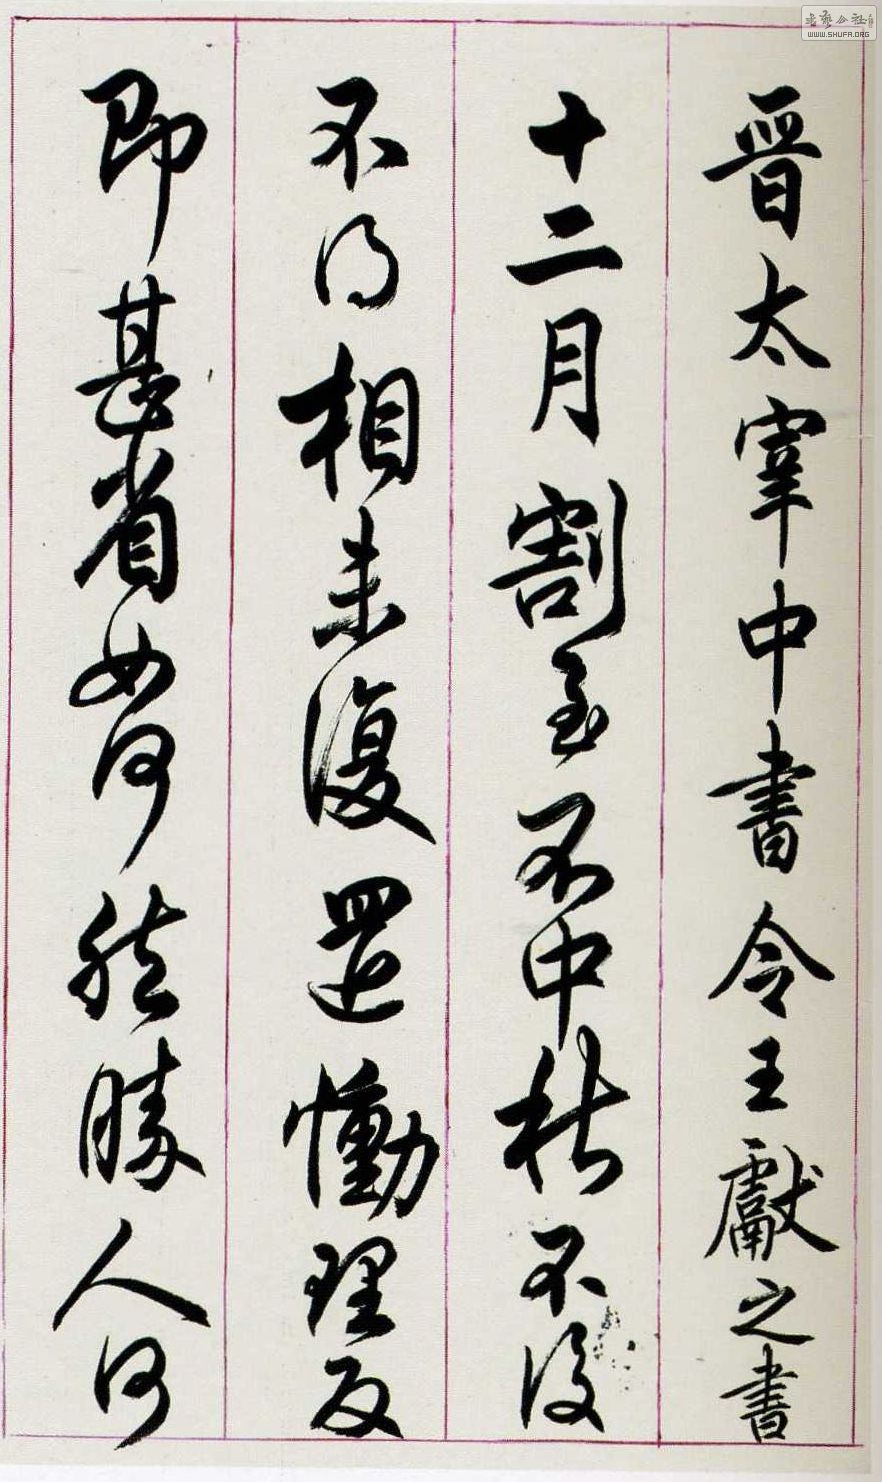 晋太宰中書令王獻之書
十二月割至不中秋不復
不得相未復還慟理反
即甚省如何然勝人何
书艺公社
WWW.SHUFA.ORG